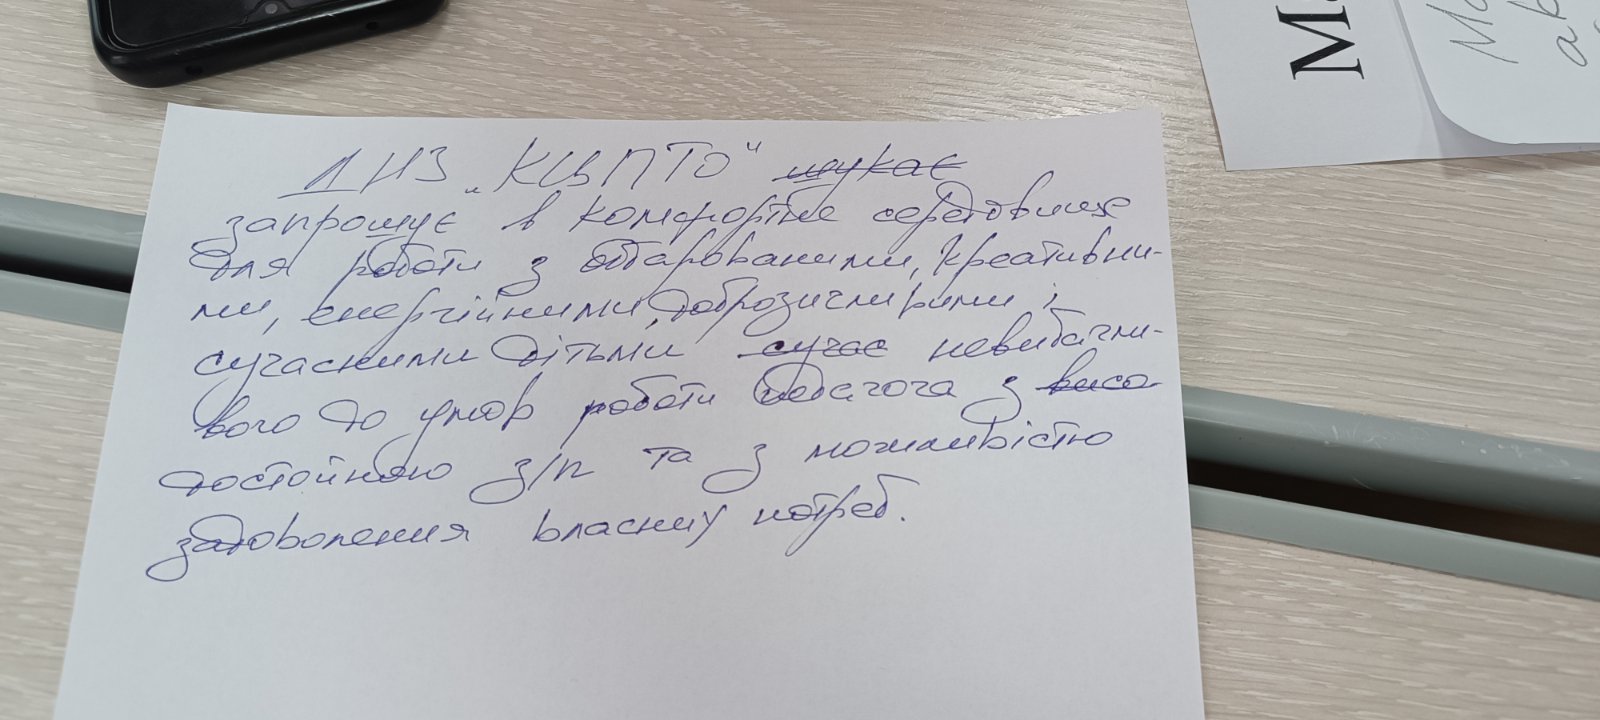 ДНЗ "КЦПТО" шукає
запрошує в комфортне середовище
для роботи з обдарованими, креативни-
ми, енергійними, доброзичливими і
сучасними дітьми сучас невибагли-
вого до умов роботи педагога з висо
достойною з/п та з можливістю
задоволення власних потреб.
Ма